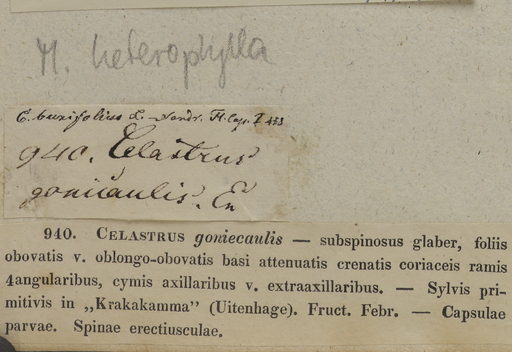 M. heterophylla
C. buxifolius L. – Sondr. Fl. Cap. I 453
940. Celastrus
goniecaulis. En
940. CELASTRUS goniecaulis — subspinosus glaber, foliis
obovatis v. oblongo-obovatis basi attenuatis crenatis coriaceis ramis
4angularibus, cymis axillaribus v. extraaxillaribus. — Sylvis pri-
mitivis in „Krakakamma” (Uitenhage). Fruct. Febr. — Capsulae
parvae. Spinae erectiusculae.